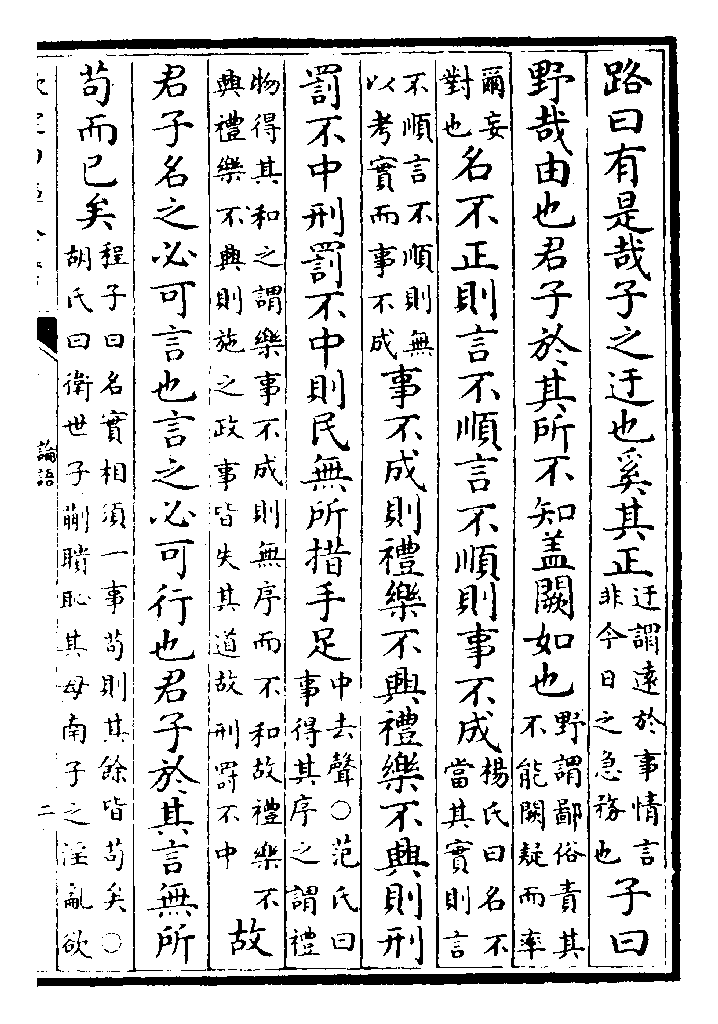 路曰有是哉子之迂也奚其正迂謂遠於事情言非今日之急務也子曰
野哉由也君子於其所不知盖闕如也野謂鄙俗責其不能闕疑而率
爾妄對也名不正則言不順言不順則事不成楊氏曰名不當其實則言
不順言不順則無以考實而事不成事不成則禮樂不興禮樂不興則刑
罰不中刑罰不中則民無所措手足中去聲○范氏曰事得其序之謂禮
物得其和之謂樂事不成則無序而不和故禮樂不興禮樂不興則施之政事皆失其道故刑罰不中故
君子名之必可言也言之必可行也君子於其言無所
苟而已矣程子曰名實相須一事苟則其餘皆苟矣○胡氏曰衛世子蒯聵恥其母南子之淫亂欲
論語
二